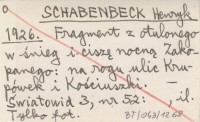 SCHABENBECK Henryk
1926. Fragment z otulonego
w śnieg i ciszę nocną Zako-
panego: na rogu ulic Kru-
pówek i Kościuszki. —
Światowid 3, nr 52: , il.
Tylko fot.
BT/063/12.62